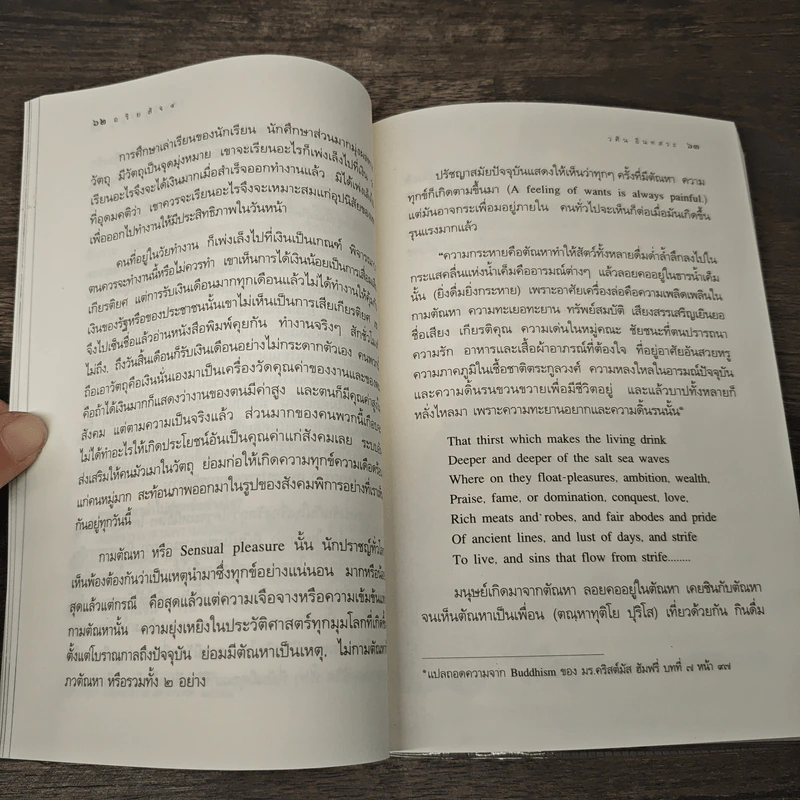 ๖๒ อริยสัจ ๔
การศึกษาเล่าเรียนของนักเรียน นักศึกษาส่วนมากมุ่ง
วัตถุ มีวัตถุเป็นจุดมุ่งหมาย เขาจะเรียนอะไรก็เพ่งเล็งไปที่เงิน
เรียนอะไรจึงจะได้เงินมากเมื่อสำเร็จออกทำงานแล้ว มิได้เพ่งเล็ง
ที่อุดมคติว่า เขาควรจะเรียนอะไรจึงจะเหมาะสมแก่อุปนิสัยของ
เพื่อออกไปทำงานให้มีประสิทธิภาพในวันหน้า
คนที่อยู่ในวัยทำงาน ก็เพ่งเล็งไปที่เงินเป็นเกณฑ์ พิจารณา
ตนควรจะทำงานนี้หรือไม่ควรทำ เขาเห็นการได้เงินน้อยเป็นการเสื่อม
เกียรติยศ แต่การรับเงินเดือนมากทุกเดือนแล้วไม่ได้ทำงานให้คุ้มกับ
เงินของรัฐหรือของประชาชนนั้นเขาไม่เห็นเป็นการเสียเกียรติยศ
จึงไปเซ็นชื่อแล้วอ่านหนังสือพิมพ์คุยกัน ทำงานจริงๆ สักชั่วโมง
ไม่ถึง. ถึงวันสิ้นเดือนก็รับเงินเดือนอย่างไม่กระดากตัวเอง คนพวกนี้
ถือเอาวัตถุคือเงินนั่นเองมาเป็นเครื่องวัดคุณค่าของงานและของ
คือถ้าได้เงินมากก็แสดงว่างานของตนมีค่าสูง และตนก็มีคุณค่าสูง
สังคม แต่ตามความเป็นจริงแล้ว ส่วนมากของคนพวกนี้เกือบจะ
ไม่ได้ทำอะไรให้เกิดประโยชน์อันเป็นคุณค่าแก่สังคมเลย ระบบ
ส่งเสริมให้คนมัวเมาในวัตถุ ย่อมก่อให้เกิดความทุกข์ความเดือดร้อน
แก่คนหมู่มาก สะท้อนภาพออกมาในรูปของสังคมพิการอย่างที่เรา
กันอยู่ทุกวันนี้
กามตัณหา หรือ Sensual pleasure นั้น นักปราชญ์ทั่วโลก
เห็นพ้องต้องกันว่าเป็นเหตุนำมาซึ่งทุกข์อย่างแน่นอน มากหรือน้อย
สุดแล้วแต่กรณี คือสุดแล้วแต่ความเจือจางหรือความเข้มข้น
กามตัณหานั้น ความยุ่งเหยิงในประวัติศาสตร์ทุกมุมโลกที่เกิดขึ้น
ตั้งแต่โบราณกาลถึงปัจจุบัน ย่อมมีตัณหาเป็นเหตุ, ไม่กามตัณหา
ภวตัณหา หรือรวมทั้ง ๒ อย่าง
วศิน อินทสระ ๖๓
ปรัชญาสมัยปัจจุบันแสดงให้เห็นว่าทุกๆ ครั้งที่มีตัณหา ความ
ทุกข์ก็เกิดตามขึ้นมา (A feeling of wants is always painful.)
แต่มันอาจกระเพื่อมอยู่ภายใน คนทั่วไปจะเห็นก็ต่อเมื่อมันเกิดขึ้น
รุนแรงมากแล้ว
"ความกระหายคือตัณหาทำให้สัตว์ทั้งหลายดื่มด่ำล้ำลึกลงไปใน
กระแสคลื่นแห่งน้ำเค็มคืออารมณ์ต่างๆ แล้วลอยคออยู่ในธารน้ำเค็ม
นั้น (ยิ่งดื่มยิ่งกระหาย) เพราะอาศัยเครื่องล่อคือความเพลิดเพลินใน
กามตัณหา ความทะเยอทะยาน ทรัพย์สมบัติ เสียงสรรเสริญเยินยอ
ชื่อเสียง เกียรติคุณ ความเด่นในหมู่คณะ ชัยชนะที่ตนปรารถนา
ความรัก อาหารและเสื้อผ้าอาภรณ์ที่ต้องใจ ที่อยู่อาศัยอันสวยหรู
ความภาคภูมิในเชื้อชาติตระกูลวงศ์ ความหลงใหลในอารมณ์ปัจจุบัน
และความดิ้นรนขวนขวายเพื่อมีชีวิตอยู่ และแล้วบาปทั้งหลายก็
หลั่งไหลมา เพราะความทะยานอยากและความดิ้นรนนั้น"
That thirst which makes the living drink
Deeper and deeper of the salt sea waves
Where on they float-pleasures, ambition, wealth,
Praise, fame, or domination, conquest, love,
Rich meats and robes, and fair abodes and pride
Of ancient lines, and lust of days, and strife
To live, and sins that flow from strife........
มนุษย์เกิดมาจากตัณหา ลอยคออยู่ในตัณหา เคยชินกับตัณหา
จนเห็นตัณหาเป็นเพื่อน (ตณฺหาทุติโย ปุริโส) เที่ยวด้วยกัน กินดื่ม
*แปลถอดความจาก Buddhism ของ มร.คริสต์มัส ฮัมฟรี บทที่ ๗ หน้า ๙๗